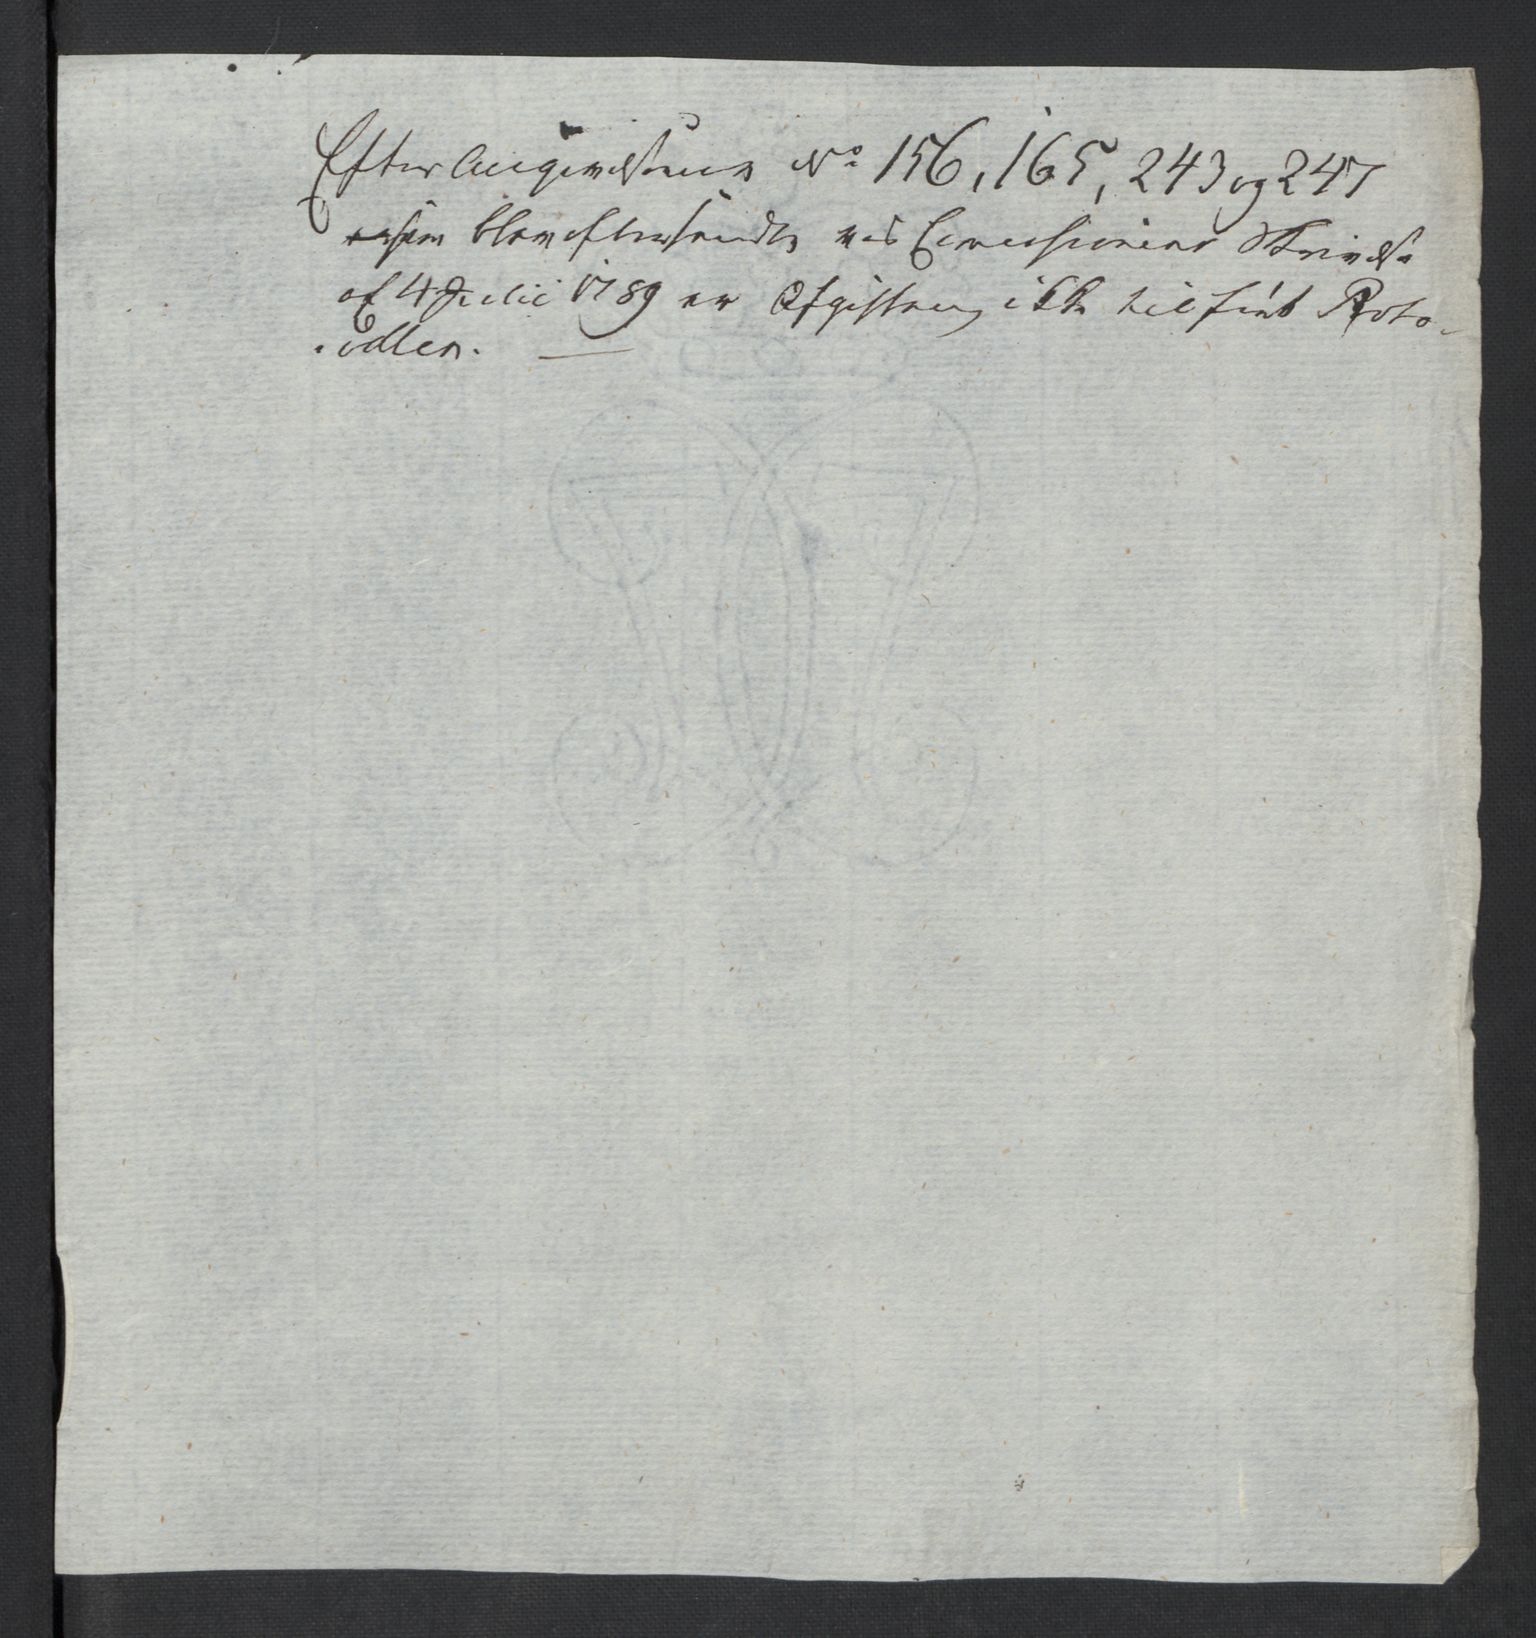 Efter Angivelserne No 156, 165, 243 og 247
som blev eftersendte ved Commissionens Skrivelse
af 4 Julii 1789 er Afgiften ikke tilført Proto-
collen.